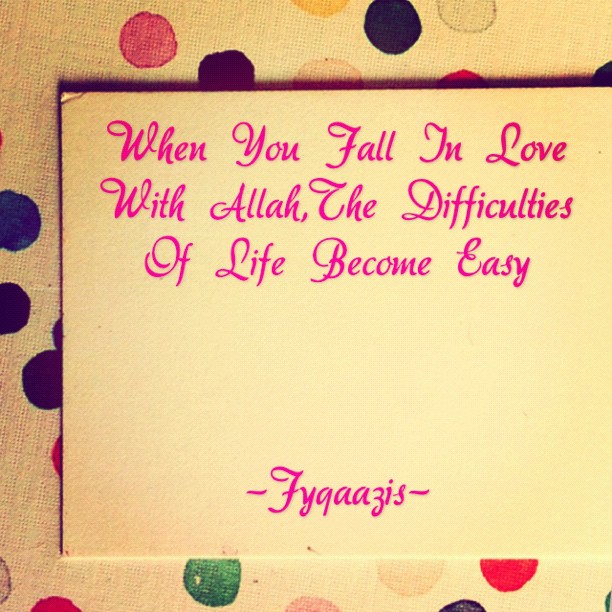 When You Fall In Love
With Allah,The Difficulties
Of Life Become Easy
~Fyqaazis~